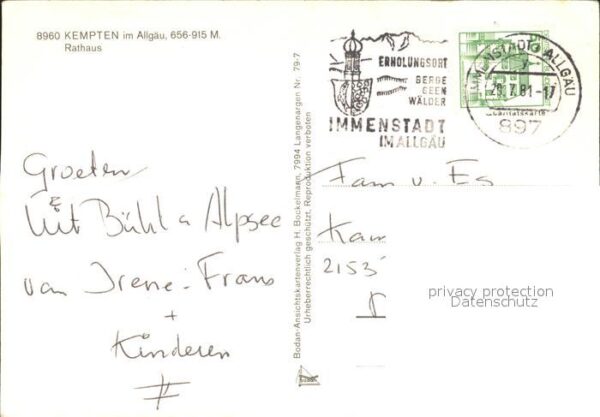 8960 KEMPTEN im Allgäu, 656-915 M.
Rathaus
ERHOLUNGSORT
BERGE
SEEN
WÄLDER
IMMENSTADT
IM ALLGÄU
IMMENSTADT, ALLGÄU
.7.81-17
897
Groeten
uit Bühl a Alpsee
van Irene - Frans
+
Kinderen
Bodan-Ansichtskartenverlag H. Bockelmann, 7994 Langenargen Nr. 79-7
Urheberrechtlich geschützt. Reproduktion verboten
Fam v. Es
2153
privacy protection
Datenschutz